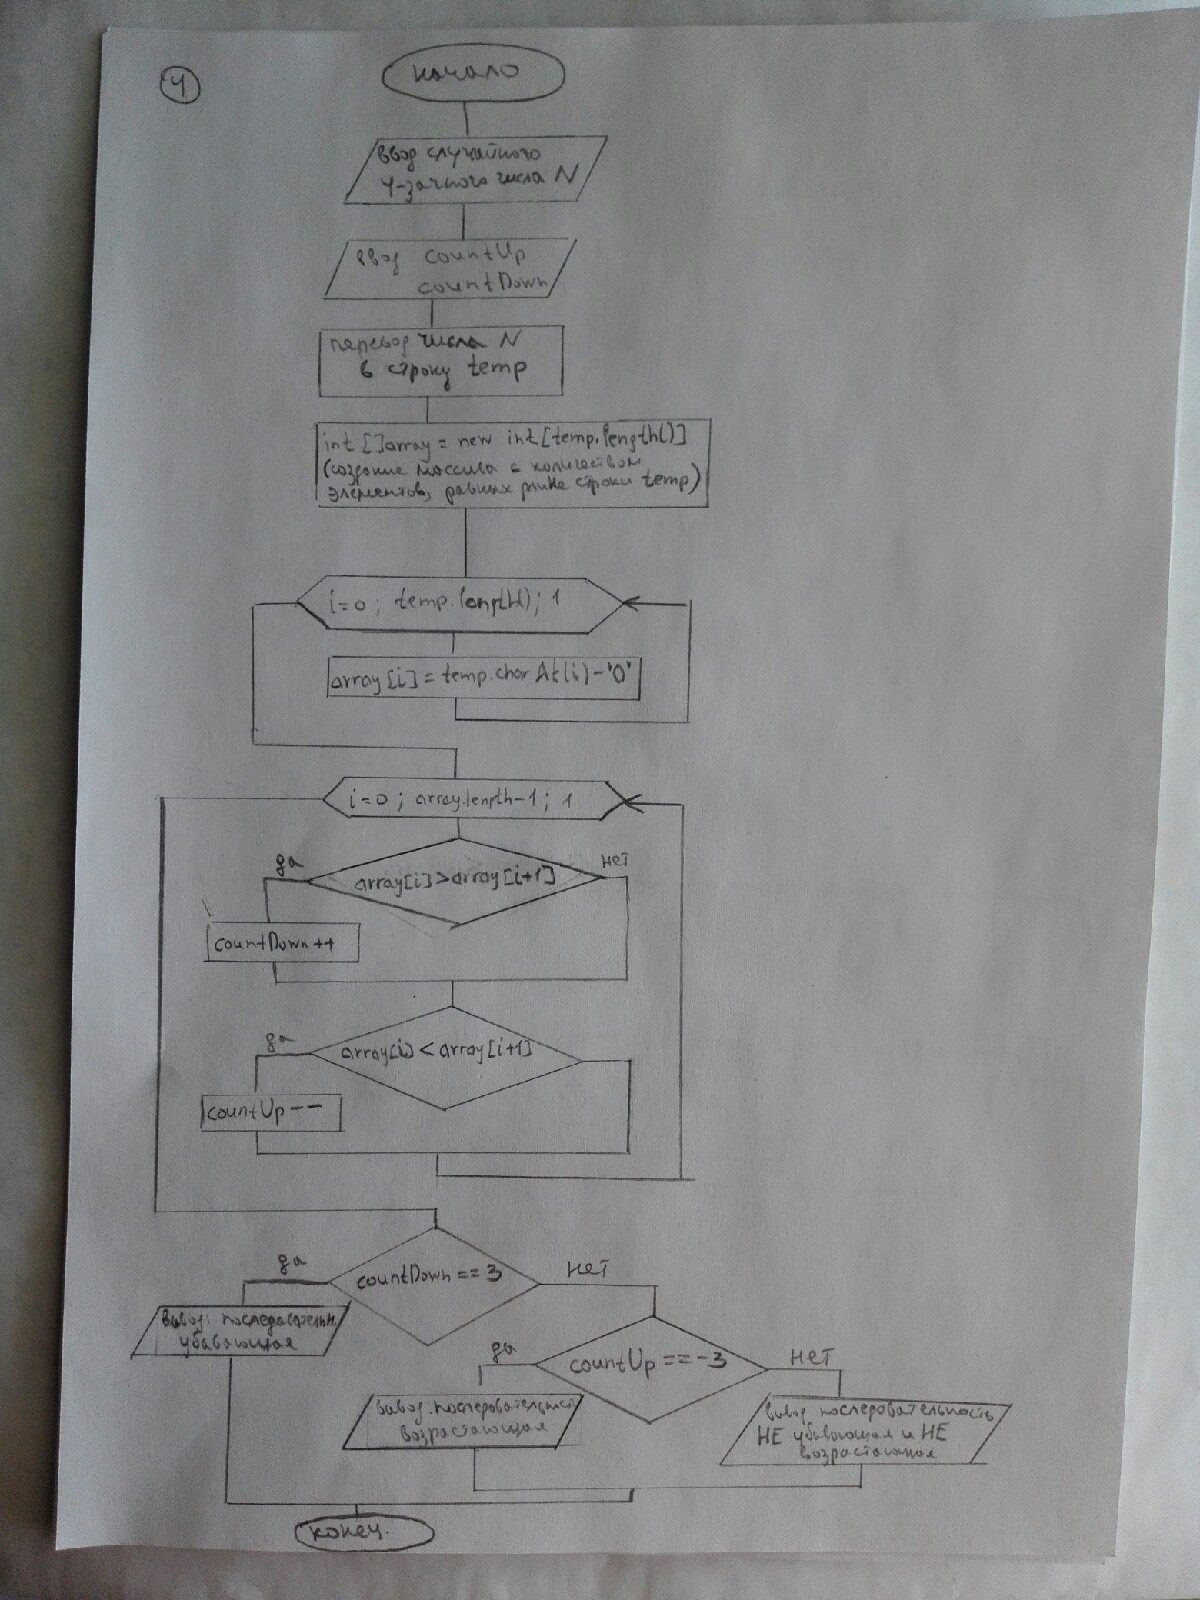 4
начало
ввод случайного
4-значного числа N
ввод countUp
countDown
перевод числа N
в строку temp
int []array = new int[temp.length()]
(создание массива с количеством
элементов, равных длине строки temp)
i=0 ; temp.length(); 1
array[i] = temp.charAt(i)-'0'
i=0 ; array.length-1 ; 1
да
нет
array[i]>array[i+1]
countDown++
да
array[i]<array[i+1]
countUp--
да
countDown == 3
нет
вывод: последовательн.
убывающая
да
countUp == -3
нет
вывод: последовательность
возрастающая
вывод последовательность
НЕ убывающая и НЕ
возрастающая
конец.